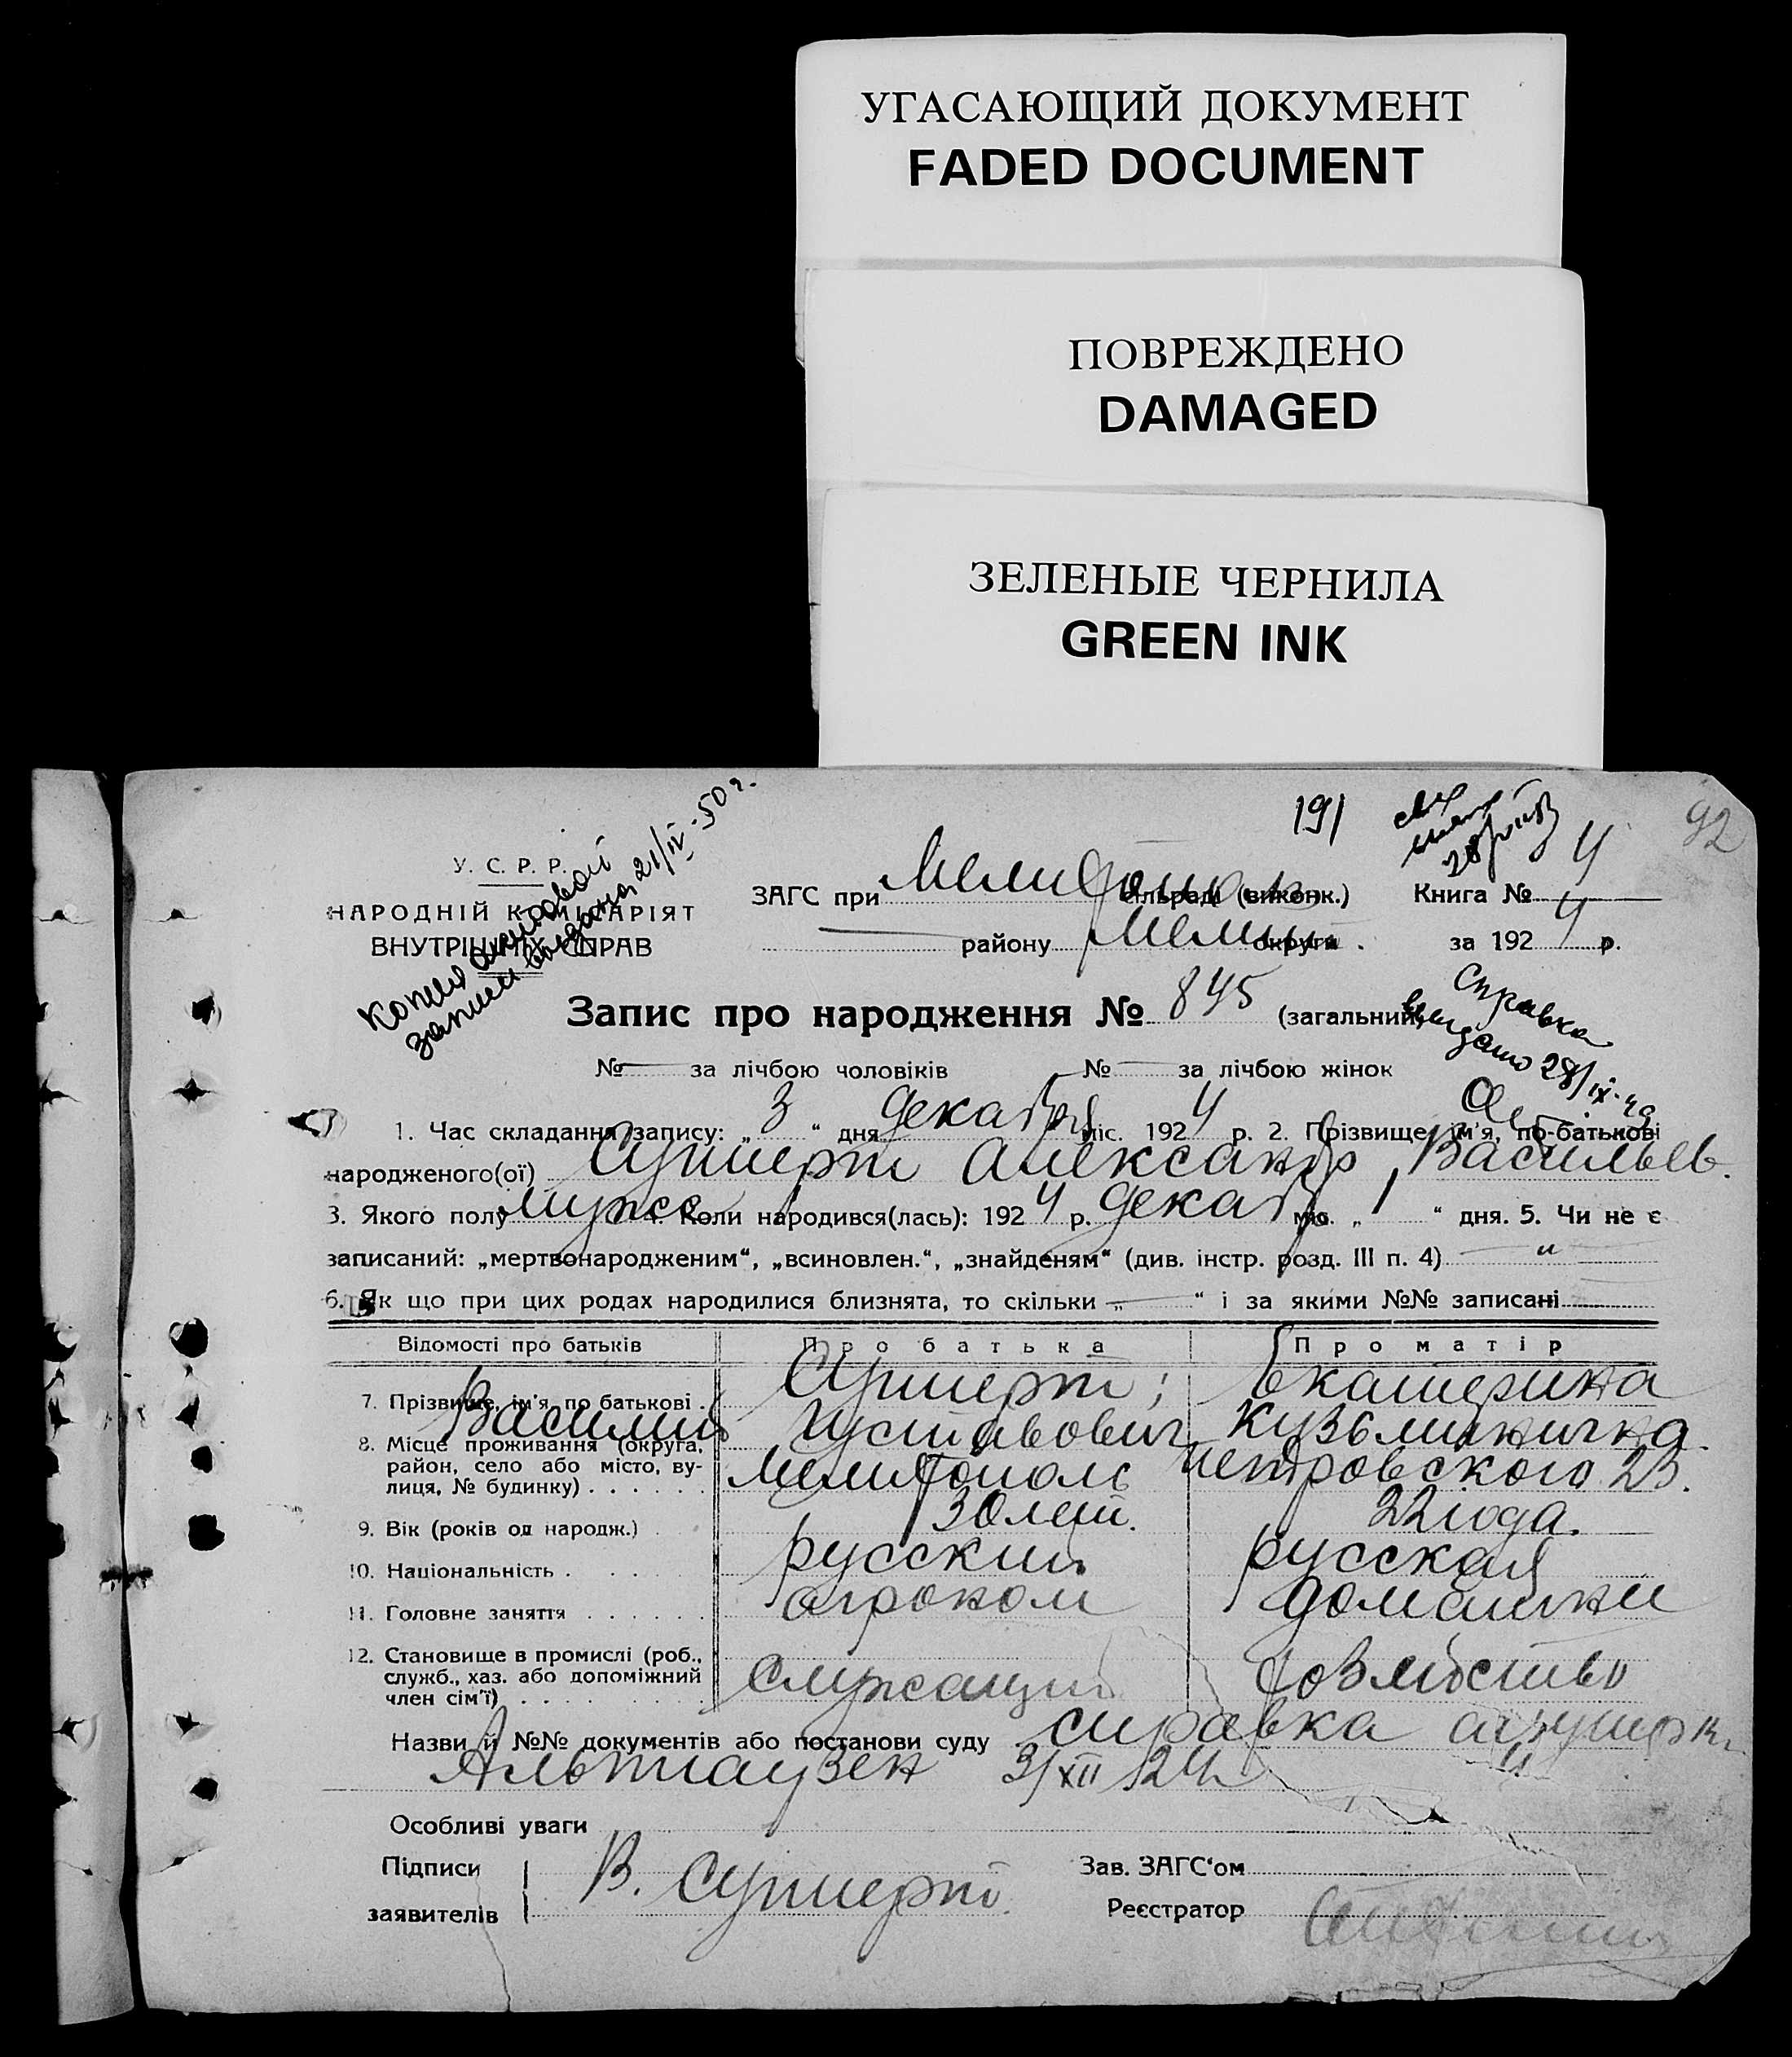 УГАСАЮЩИЙ ДОКУМЕНТ
FADED DOCUMENT
ПОВРЕЖДЕНО
DAMAGED
ЗЕЛЕНЫЕ ЧЕРНИЛА
GREEN INK
191
92
Копия актовой
записи выдана 21/IV-50 г.
У. С. Р. Р.
НАРОДНІЙ КОМІСАРІЯТ
ВНУТРІШНІХ СПРАВ
ЗАГС при Мелитополь сільраді (виконк.) Книга № 4
району Мелит. округи за 1924 р.
Справка
выдано 28/IX-49
Запис про народження № 845 (загальний)
№ — за лічбою чоловіків № — за лічбою жінок
1. Час складання запису: „3“ дня декабря міс. 1924 р. 2. Прізвище, ім'я, по-батькові
народженого(ої) Суттерт Александр Васильев.
3. Якого полу мужс 4. Коли народився(лась): 1924 р. декабр міс. „1“ дня. 5. Чи не є
записаний: „мертвонародженим“, „всиновлен.“, „знайденям“ (див. інстр. розд. III п. 4) — „ —
6. Як що при цих родах народилися близнята, то скільки „—“ і за якими №№ записані
Відомості про батьків Про батька Про матір
7. Прізвище, ім'я, по батькові . Суттерт; Екатерина
Василий Густавович Кузьминична.
8. Місце проживання (округа,
район, село або місто, ву-
лиця, № будинку) . . . . . . Мелитополь Петровского 23.
9. Вік (років од народж.) 30 лет. 22 года.
10. Національність . русский русская
11. Головне заняття . . . . . . агроном домашнии
12. Становище в промислі (роб.,
служб., хаз. або допоміжний
член сім'ї) . . . . служащий хозяйство
Назви й №№ документів або постанови суду справка акушерки
Альтгаузен 3/XII 24
Особливі уваги
Підписи
заявителів В. Суттерт
Зав. ЗАГС'ом
Реєстратор